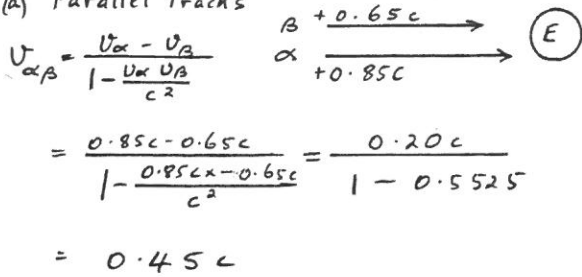 (a) Parallel Tracks
β +0.65c
α +0.85c
E
U_αβ = (U_α - U_β) / (1 - (U_α U_β)/c²)
= (0.85c - 0.65c) / (1 - (0.85c x - 0.65c)/c²) = 0.20c / (1 - 0.5525)
= 0.45c